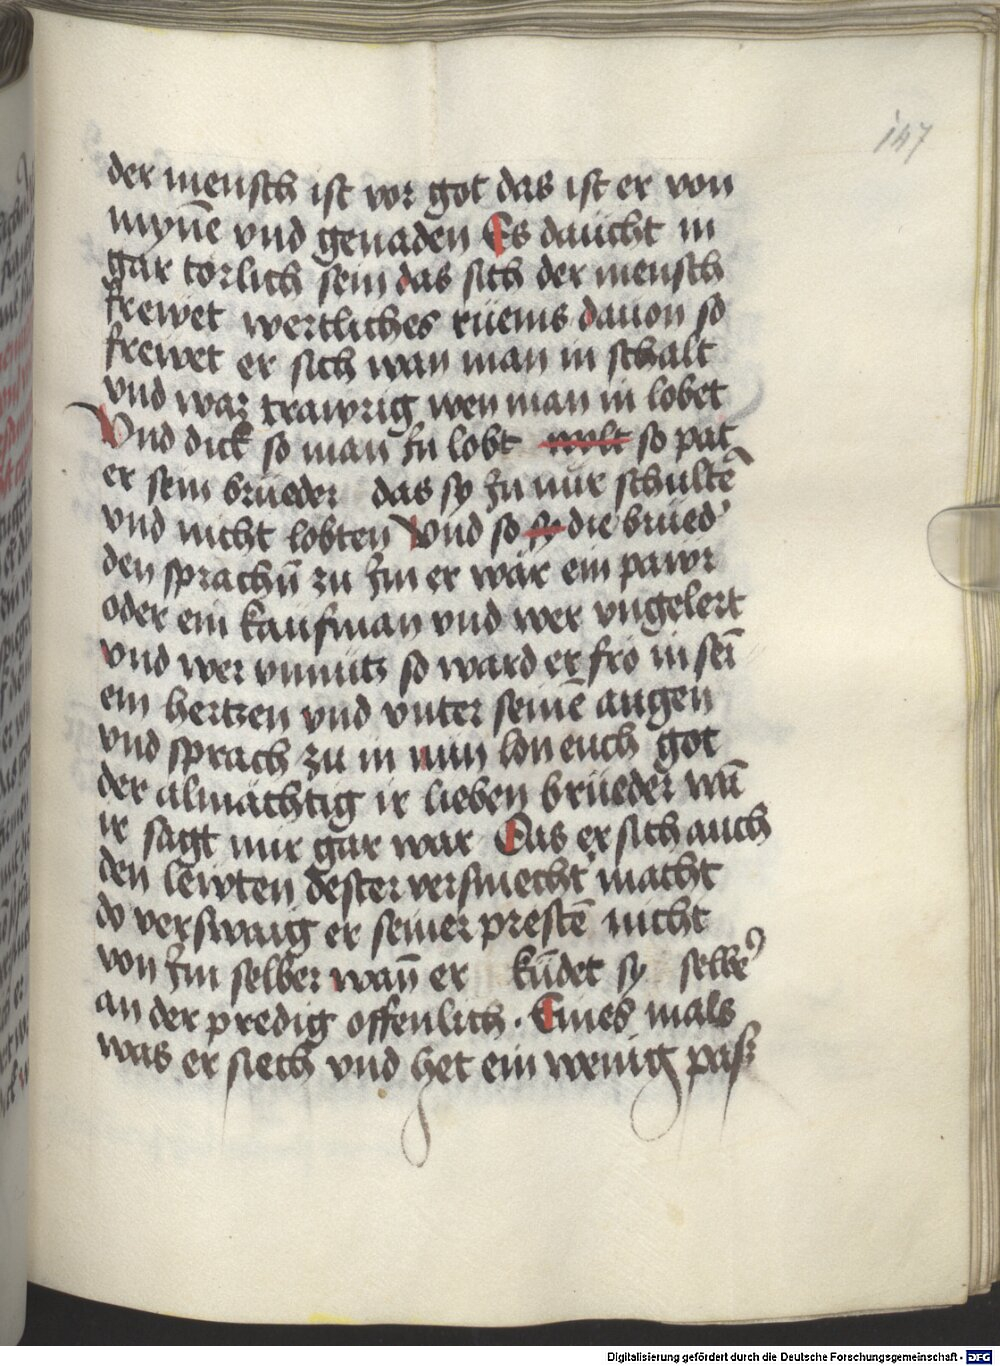 147
der mensch ist vor got das ist er von
mynē vnd genaden Es daücht in
gar torlich sein das sich der mensch
frewet wertliches rüems dauon so
frewet er sich wan man in schalt
vnd waz trawrig wen man in lobet
Vnd dick so man in lobt wolt so pat
er sein brueder das sy in nür schultē
vnd nicht lobten Vnd so sy die brued'
den sprachn̄ zu im er wär ein pawr
oder ein kaufman vnd wer vngelert
vnd wer vnnütz so ward er fro in sei
em hertzen vnd vnter seinē augen
vnd sprach zu in nun lon euch got
der almächtig ir lieben brüeder wā
ir sagt mir gar war Das er sich auch
den lewten dester versmecht macht
do verswaig er seiner prestē nicht
von im selber wan̄ er kündet sy selbe'
an der predig offenlich. Eines mals
was er siech vnd het ein wenig pasz
Digitalisierung gefördert durch die Deutsche Forschungsgemeinschaft - DFG